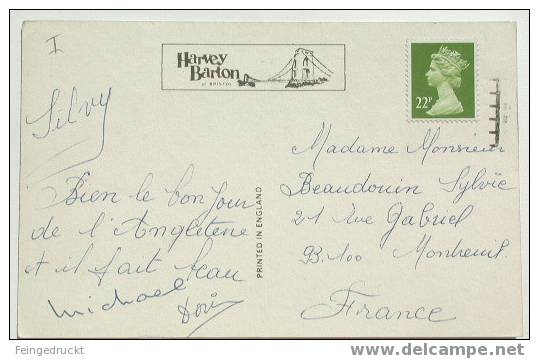 I
Harvey
Barton
of BRISTOL
22P
Silvy
Bien le bon jour
de l'Angleterre
et il fait beau
michael
PRINTED IN ENGLAND
Madame Monsieur
Beaudouin Sylvie
21 Rue Gabriel
93.100 Montreuil
France
Feingedruckt
www.delcampe.net